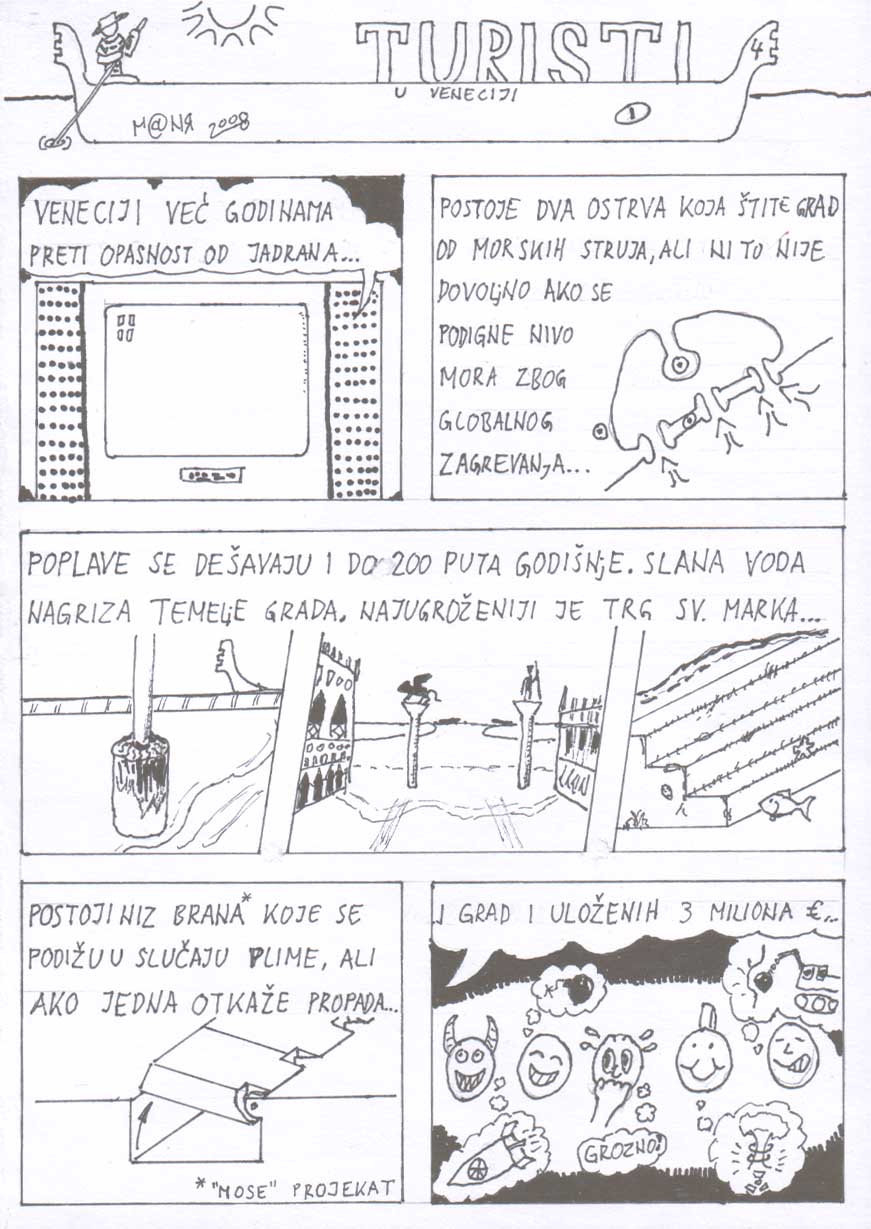 TURISTI
U VENECIJI
4
1
M@NЯ 2008
VENECIJI VEĆ GODINAMA
PRETI OPASNOST OD JADRANA...
POSTOJE DVA OSTRVA KOJA ŠTITE GRAD
OD MORSKIH STRUJA, ALI NI TO NIJE
DOVOLJNO AKO SE
PODIGNE NIVO
MORA ZBOG
GLOBALNOG
ZAGREVANJA...
POPLAVE SE DEŠAVAJU I DO 200 PUTA GODIŠNJE. SLANA VODA
NAGRIZA TEMELJE GRADA. NAJUGROŽENIJI JE TRG SV. MARKA...
POSTOJI NIZ BRANA* KOJE SE
PODIŽU U SLUČAJU PLIME, ALI
AKO JEDNA OTKAŽE PROPADA...
* "MOSE" PROJEKAT
I GRAD I ULOŽENIH 3 MILIONA €...
GROZNO!